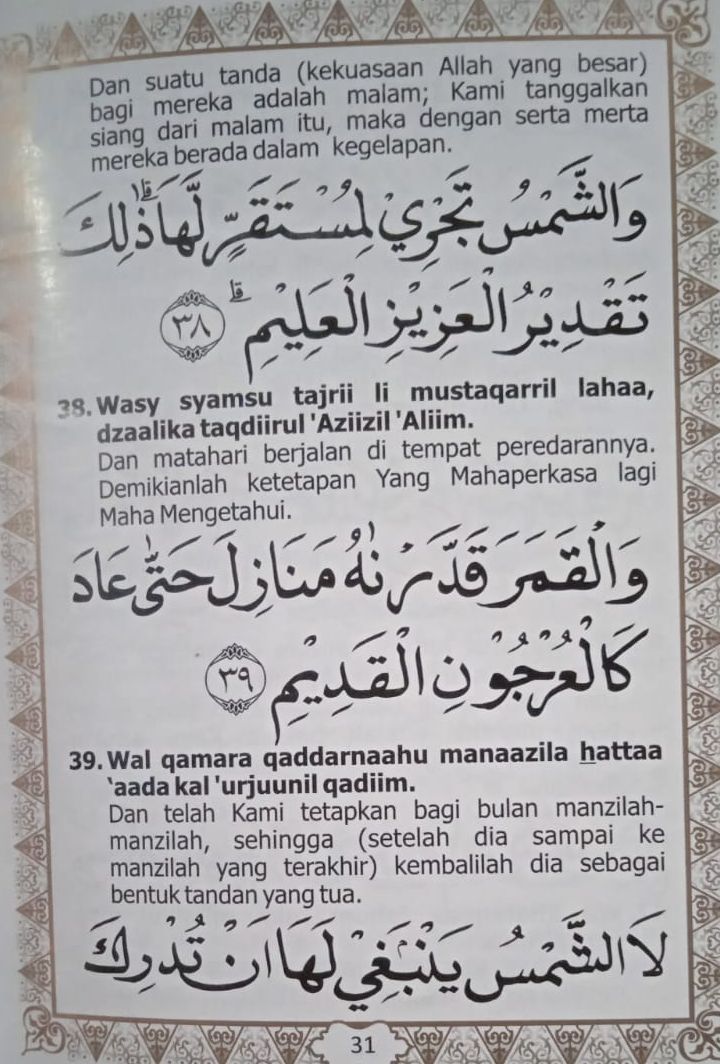 Dan suatu tanda (kekuasaan Allah yang besar)
bagi mereka adalah malam; Kami tanggalkan
siang dari malam itu, maka dengan serta merta
mereka berada dalam kegelapan.
وَالشَّمْسُ تَجْرِيْ لِمُسْتَقَرٍّ لَّهَا ۗذٰلِكَ
تَقْدِيْرُ الْعَزِيْزِ الْعَلِيْمِ ۗ ﴿٣٨﴾
38. Wasy syamsu tajrii li mustaqarril lahaa,
dzaalika taqdiirul 'Aziizil 'Aliim.
Dan matahari berjalan di tempat peredarannya.
Demikianlah ketetapan Yang Mahaperkasa lagi
Maha Mengetahui.
وَالْقَمَرَ قَدَّرْنٰهُ مَنَازِلَ حَتّٰى عَادَ
كَالْعُرْجُوْنِ الْقَدِيْمِ ﴿٣٩﴾
39. Wal qamara qaddarnaahu manaazila hattaa
'aada kal 'urjuunil qadiim.
Dan telah Kami tetapkan bagi bulan manzilah-
manzilah, sehingga (setelah dia sampai ke
manzilah yang terakhir) kembalilah dia sebagai
bentuk tandan yang tua.
لَا الشَّمْسُ يَنْبَغِيْ لَهَا اَنْ تُدْرِكَ
31